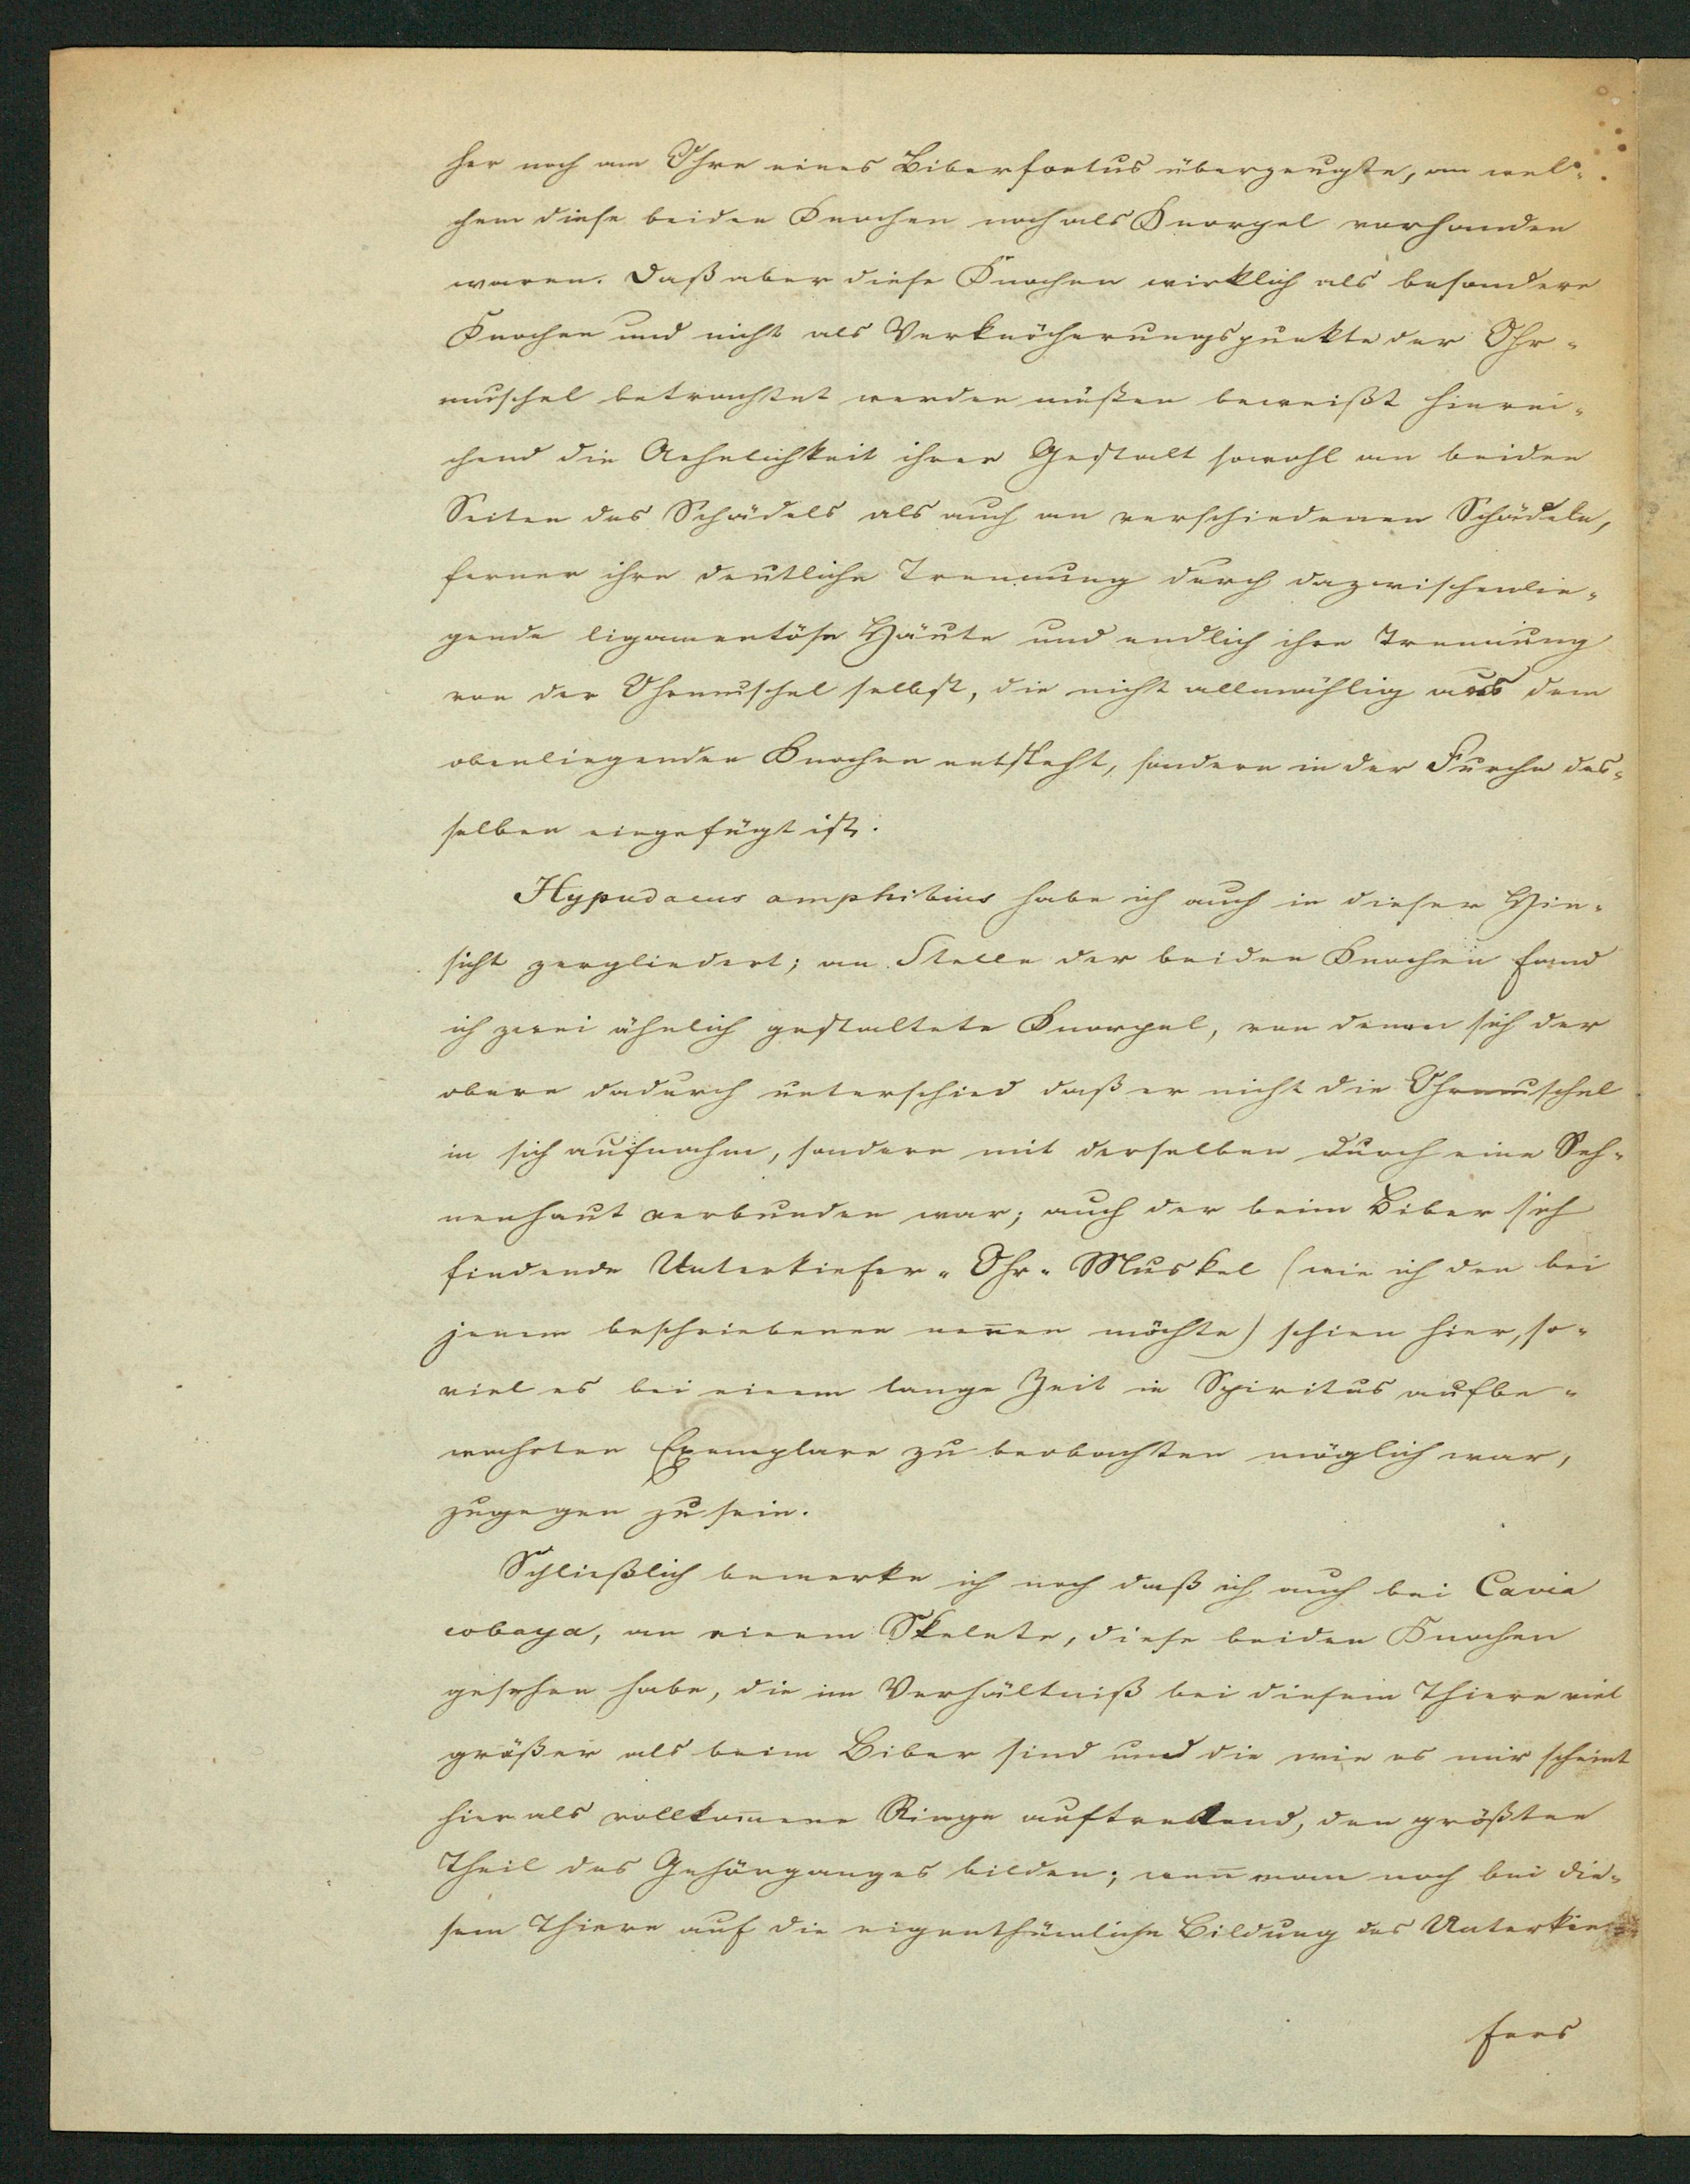 her noch am Ohre eines Biberfoetus überzeugte, an wel-
chem diese beiden Knochen noch als Knorpel vorhanden
waren. Daß aber diese Knochen wirklich als besondere
Knochen und nicht als Verknöcherungspunkte der Ohr-
muschel betrachtet werden müßen beweißt hinrei-
chend die Aehnlichkeit ihrer Gestalt sowohl an beiden
Seiten des Schädels als auch an verschiedenen Schädeln,
ferner ihre deutliche Trennung durch dazwischenlie-
gende ligamentöse Häute und endlich ihre Trennung
von der Ohrmuschel selbst, die nicht allmählig aus dem
obenliegenden Knochen entsteht, sondern in der Furche des-
selben eingefügt ist.
Hypudaeus amphibius habe ich auch in dieser Hin-
sicht zergliedert; an Stelle der beiden Knochen fand
ich zwei ähnlich gestaltete Knorpel, von denen sich der
obere dadurch unterschied daß er nicht die Ohrmuschel
in sich aufnahm, sondern mit derselben durch eine Seh-
nenhaut verbunden war; auch der beim Biber sich
findende Unterkiefer-Ohr-Muskel (wie ich den bei
jenem beschriebenen neñen möchte) schien hier, so-
viel es bei einem lange Zeit in Spiritus aufbe-
wahrten Exemplare zu beobachten möglich war,
zugegen zu sein.
Schließlich bemerke ich noch daß ich auch bei Cavia
cobaya, an einem Skelete, diese beiden Knochen
gesehen habe, die im Verhältniß bei diesem Thiere viel
größer als beim Biber sind und die wie es mir scheint
hier als vollkom̄ene Ringe auftrettend, den größten
Theil des Gehörganges bilden; weñ man noch bei die-
sem Thiere auf die eigenthümliche Bildung des Unterkie-
fers